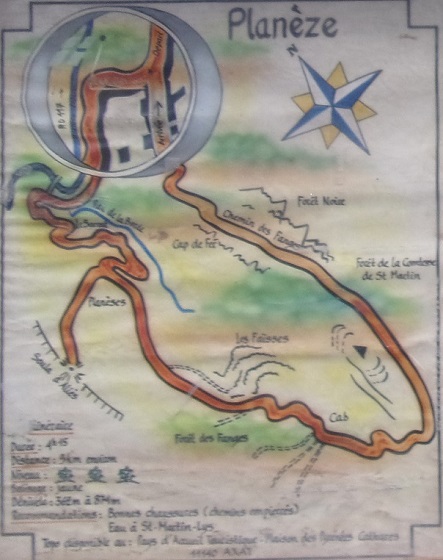 Planèze
N
Départ
Arrivée
RD 117
Forêt Noire
Chemin des Fanges
Cap de Fer
Forêt de la Comtesse
de St Martin
de la Boulzane
Planèses
Les Faïsses
Cab
Forêt des Fanges
Itinéraire
Durée : 4h15
Distance : 9km environ
Niveau :
Balisage : jaune
Dénivelé : 362m à 874m
Recommandations : Bonnes chaussures (chemins empierrés)
Eau à St-Martin-Lys
Topo disponible au : Pays d'Accueil Touristique - Maison des Pyrénées Cathares
11140 AXAT